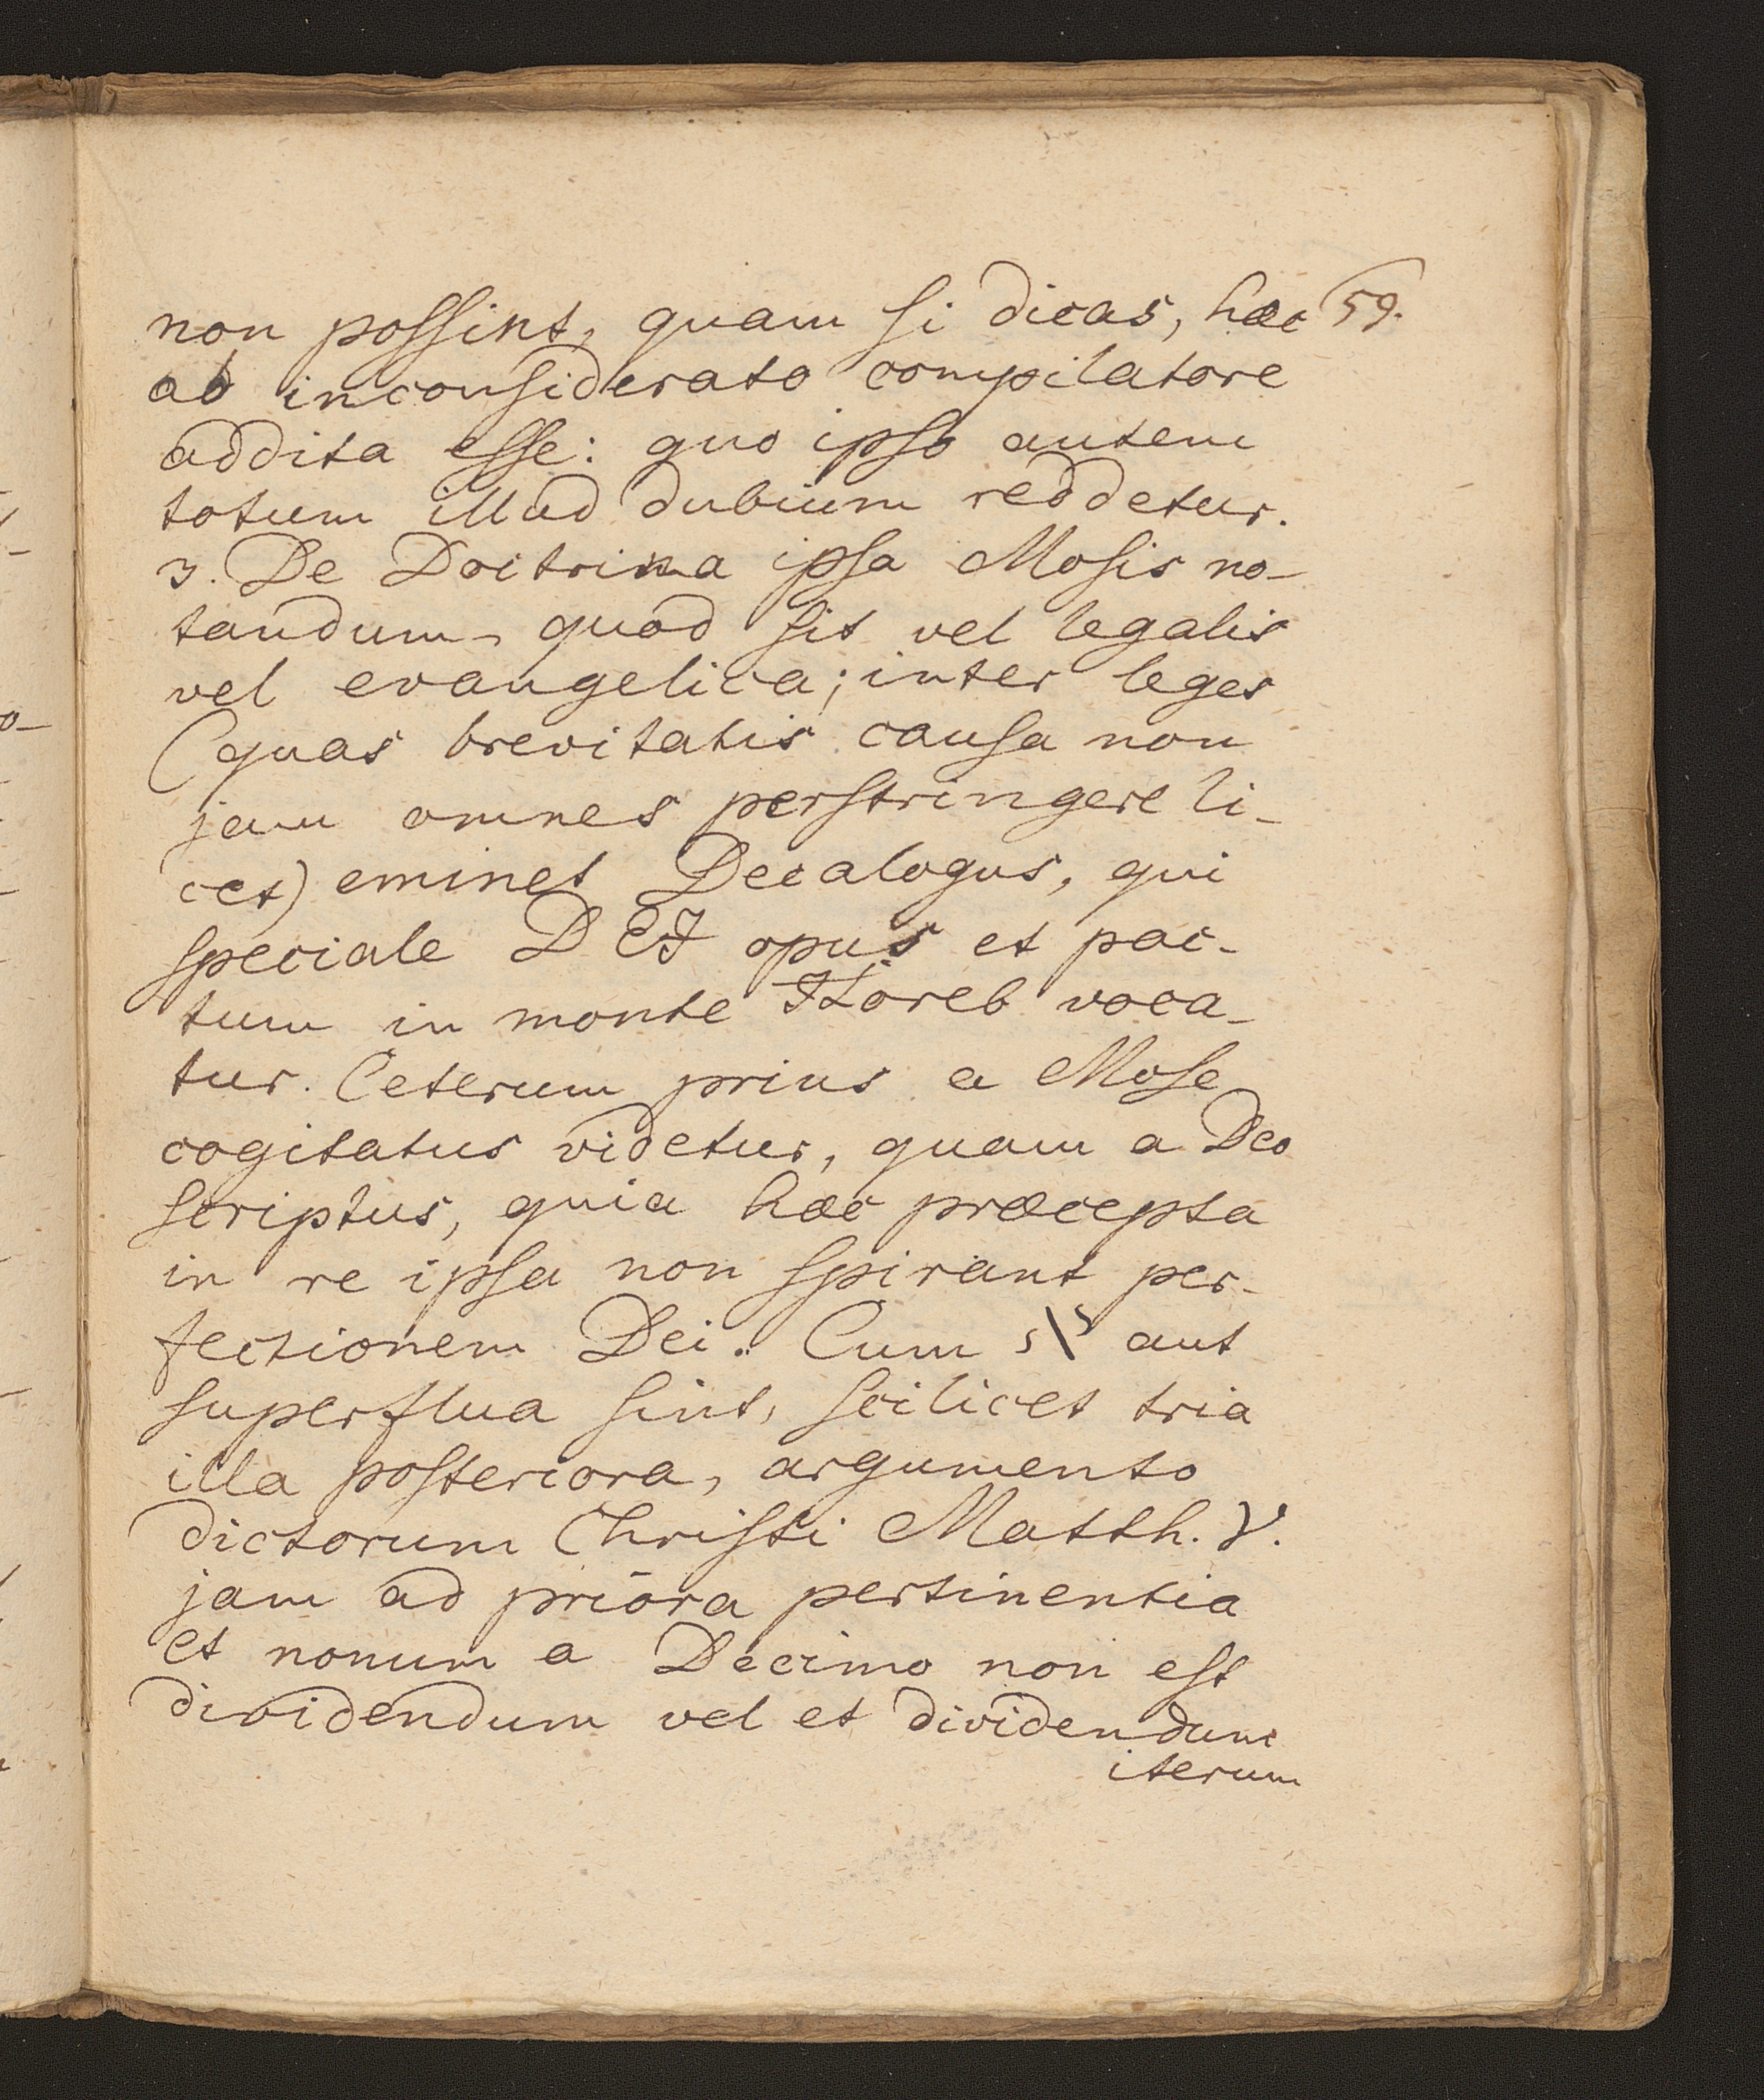 non possint, quam si dicas, hæc 59.
ab inconsiderato compilatore
addita esse: quo ipso autem
totum illud dubium reddetur.
3. De Doctrina ipsa Mosis no-
tandum, quod sit vel legalis
vel evangelica; inter leges
(quas brevitatis causa non
jam omnes perstringere li-
cet) eminet Decalogus, qui
speciale DEI opus et pac-
tum in monte Horeb voca-
tur. Ceterum prius a Mose
cogitatus videtur, quam a Deo
scriptus, quia hæc præcepta
in re ipsa non spirant per-
fectionem Dei. Cum aut
superflua sint, scilicet tria
illa posteriora, argumento
dictorum Christi Matth. V.
jam ad priora pertinentia
et nonum a Decimo non est
dividendum vel et dividendum
iterum